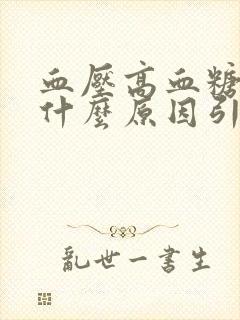 血壓高血糖
什麼原因引
亂世一書生